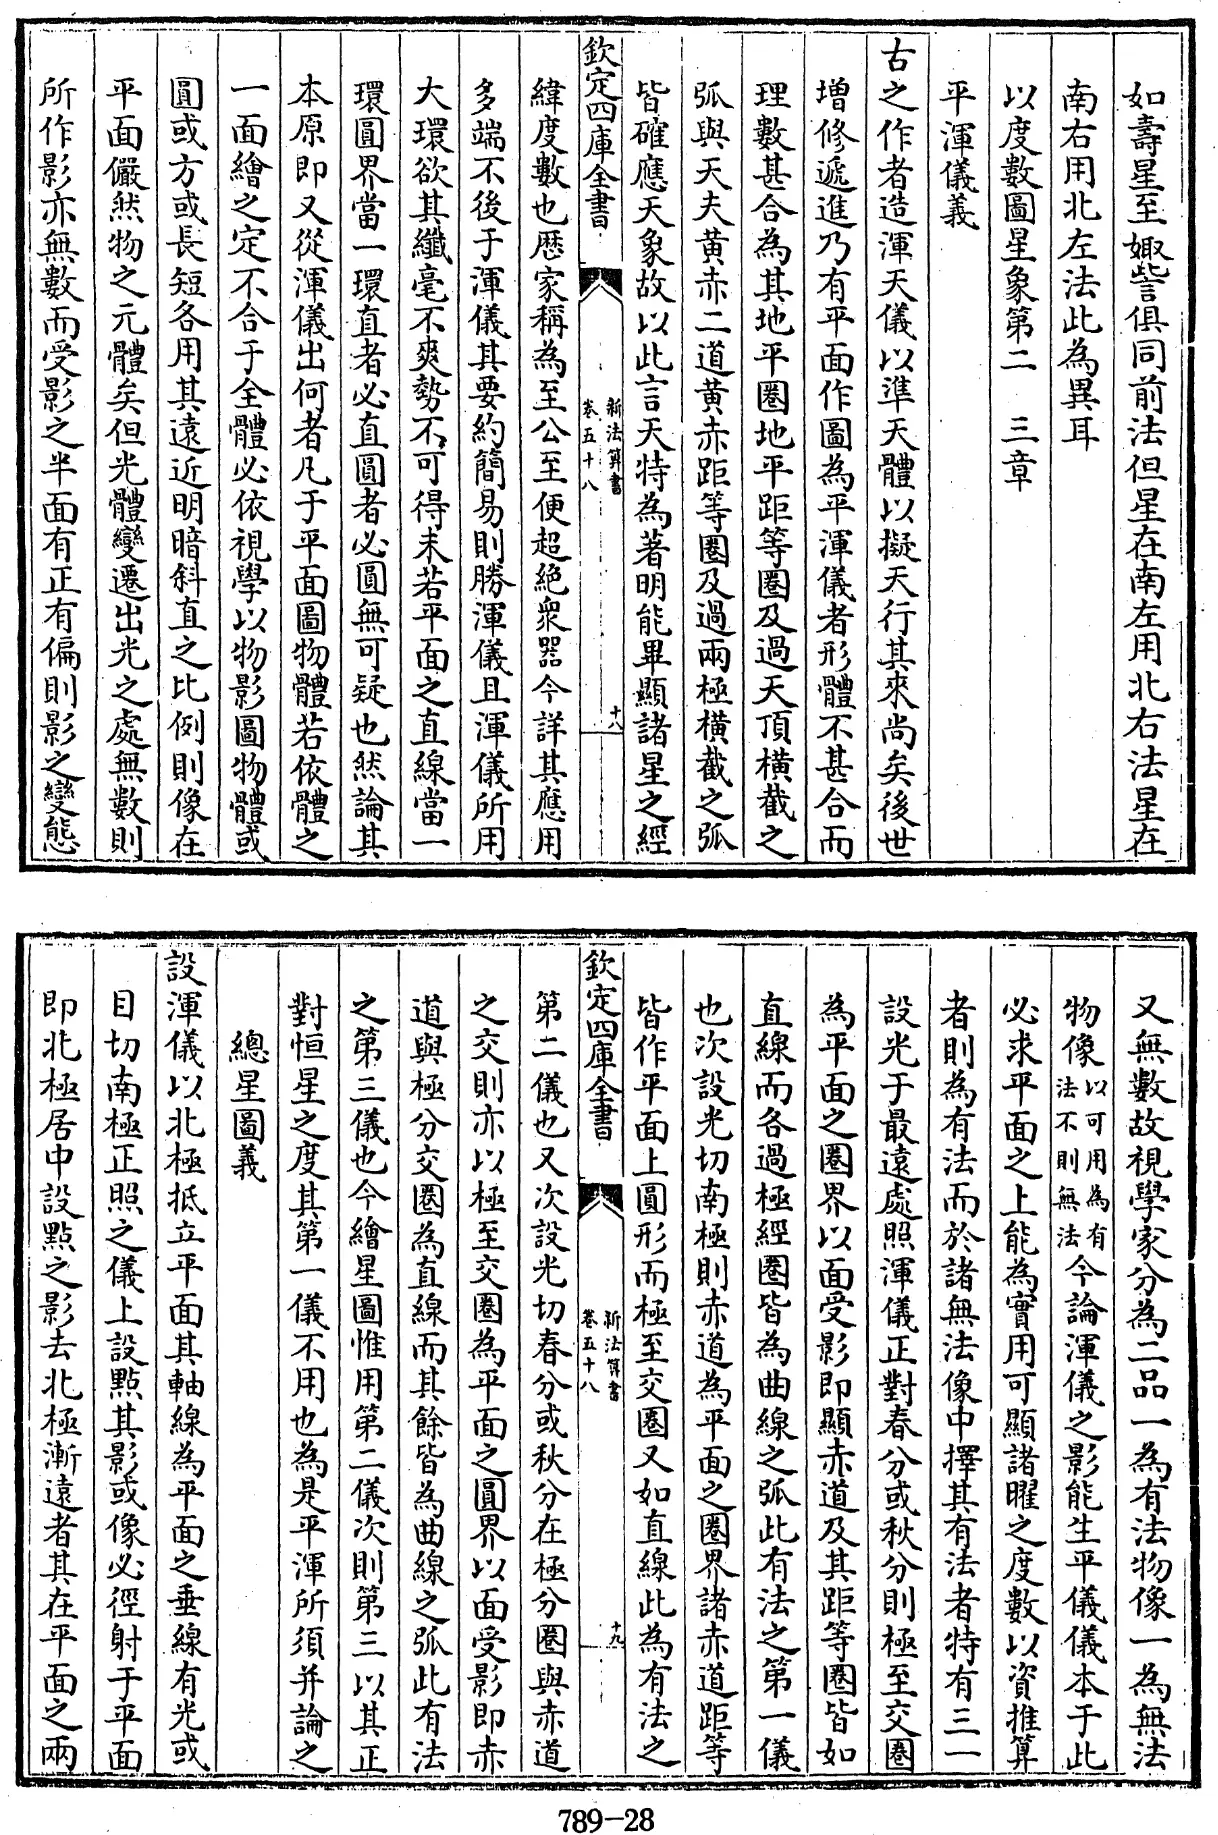 如壽星至娵訾俱同前法但星在南左用北右法星在
南右用北左法此為異耳
以度數圖星象第二　三章
平渾儀義
古之作者造渾天儀以準天體以擬天行其來尚矣後世
增修遞進乃有平面作圖為平渾儀者形體不甚合而
理數甚合為其地平圈地平距等圈及過天頂橫截之
弧與天夫黃赤二道黃赤距等圈及過兩極橫截之弧
皆確應天象故以此言天特為著明能畢顯諸星之經
欽定四庫全書
新法算書
卷五十八
十八
緯度數也厯家稱為至公至便超絶衆器今詳其應用
多端不後于渾儀其要約簡易則勝渾儀且渾儀所用
大環欲其纖毫不爽勢不可得未若平面之直線當一
環圓界當一環直者必直圓者必圓無可疑也然論其
本原即又從渾儀出何者凡于平面圖物體若依體之
一面繪之定不合于全體必依視學以物影圖物體或
圓或方或長短各用其遠近明暗斜直之比例則像在
平面儼然物之元體矣但光體變遷出光之處無數則
所作影亦無數而受影之半面有正有偏則影之變態
又無數故視學家分為二品一為有法物像一為無法
物像以可用為有法不則無法今論渾儀之影能生平儀儀本于此
必求平面之上能為實用可顯諸曜之度數以資推算
者則為有法而於諸無法像中擇其有法者特有三一
設光于最遠處照渾儀正對春分或秋分則極至交圈
為平面之圈界以面受影即顯赤道及其距等圈皆如
直線而各過極經圈皆為曲線之弧此有法之第一儀
也次設光切南極則赤道為平面之圈界諸赤道距等
皆作平面上圓形而極至交圈又如直線此為有法之
欽定四庫全書
新法算書
卷五十八
十九
第二儀也又次設光切春分或秋分在極分圈與赤道
之交則亦以極至交圈為平面之圓界以面受影即赤
道與極分交圈為直線而其餘皆為曲線之弧此有法
之第三儀也今繪星圖惟用第二儀次則第三以其正
對恒星之度其第一儀不用也為是平渾所須并論之
總星圖義
設渾儀以北極抵立平面其軸線為平面之垂線有光或
目切南極正照之儀上設點其影或像必徑射于平面
即北極居中設點之影去北極漸遠者其在平面之兩
789-28